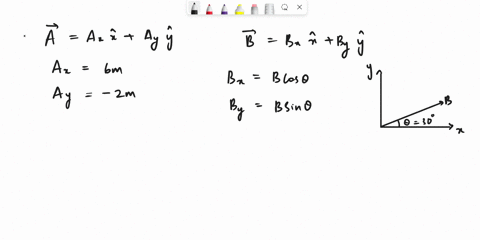 A⃗ = Ax x̂ + Ay ŷ
Ax = 6m
Ay = -2m
B⃗ = Bx x̂ + By ŷ
Bx = B cosθ
By = B sinθ
y
B
θ = 30°
x